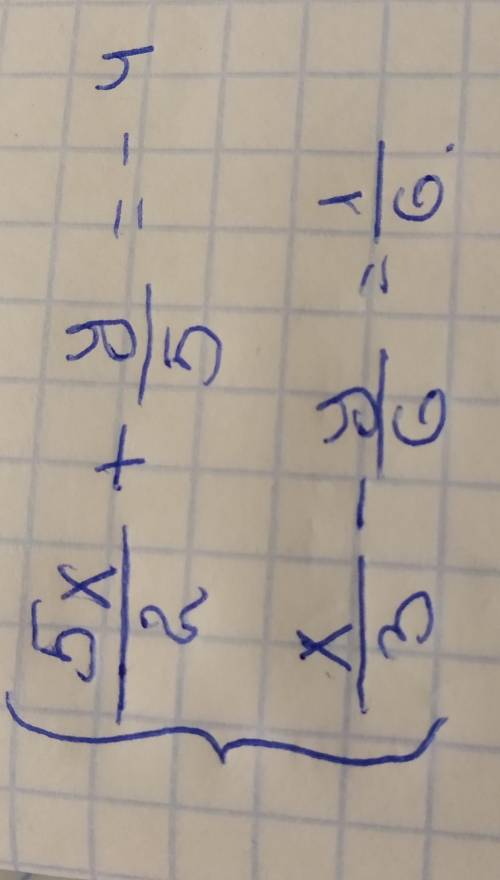 { 5x/2 + y/5 = -4
x/3 - y/6 = 1/6.